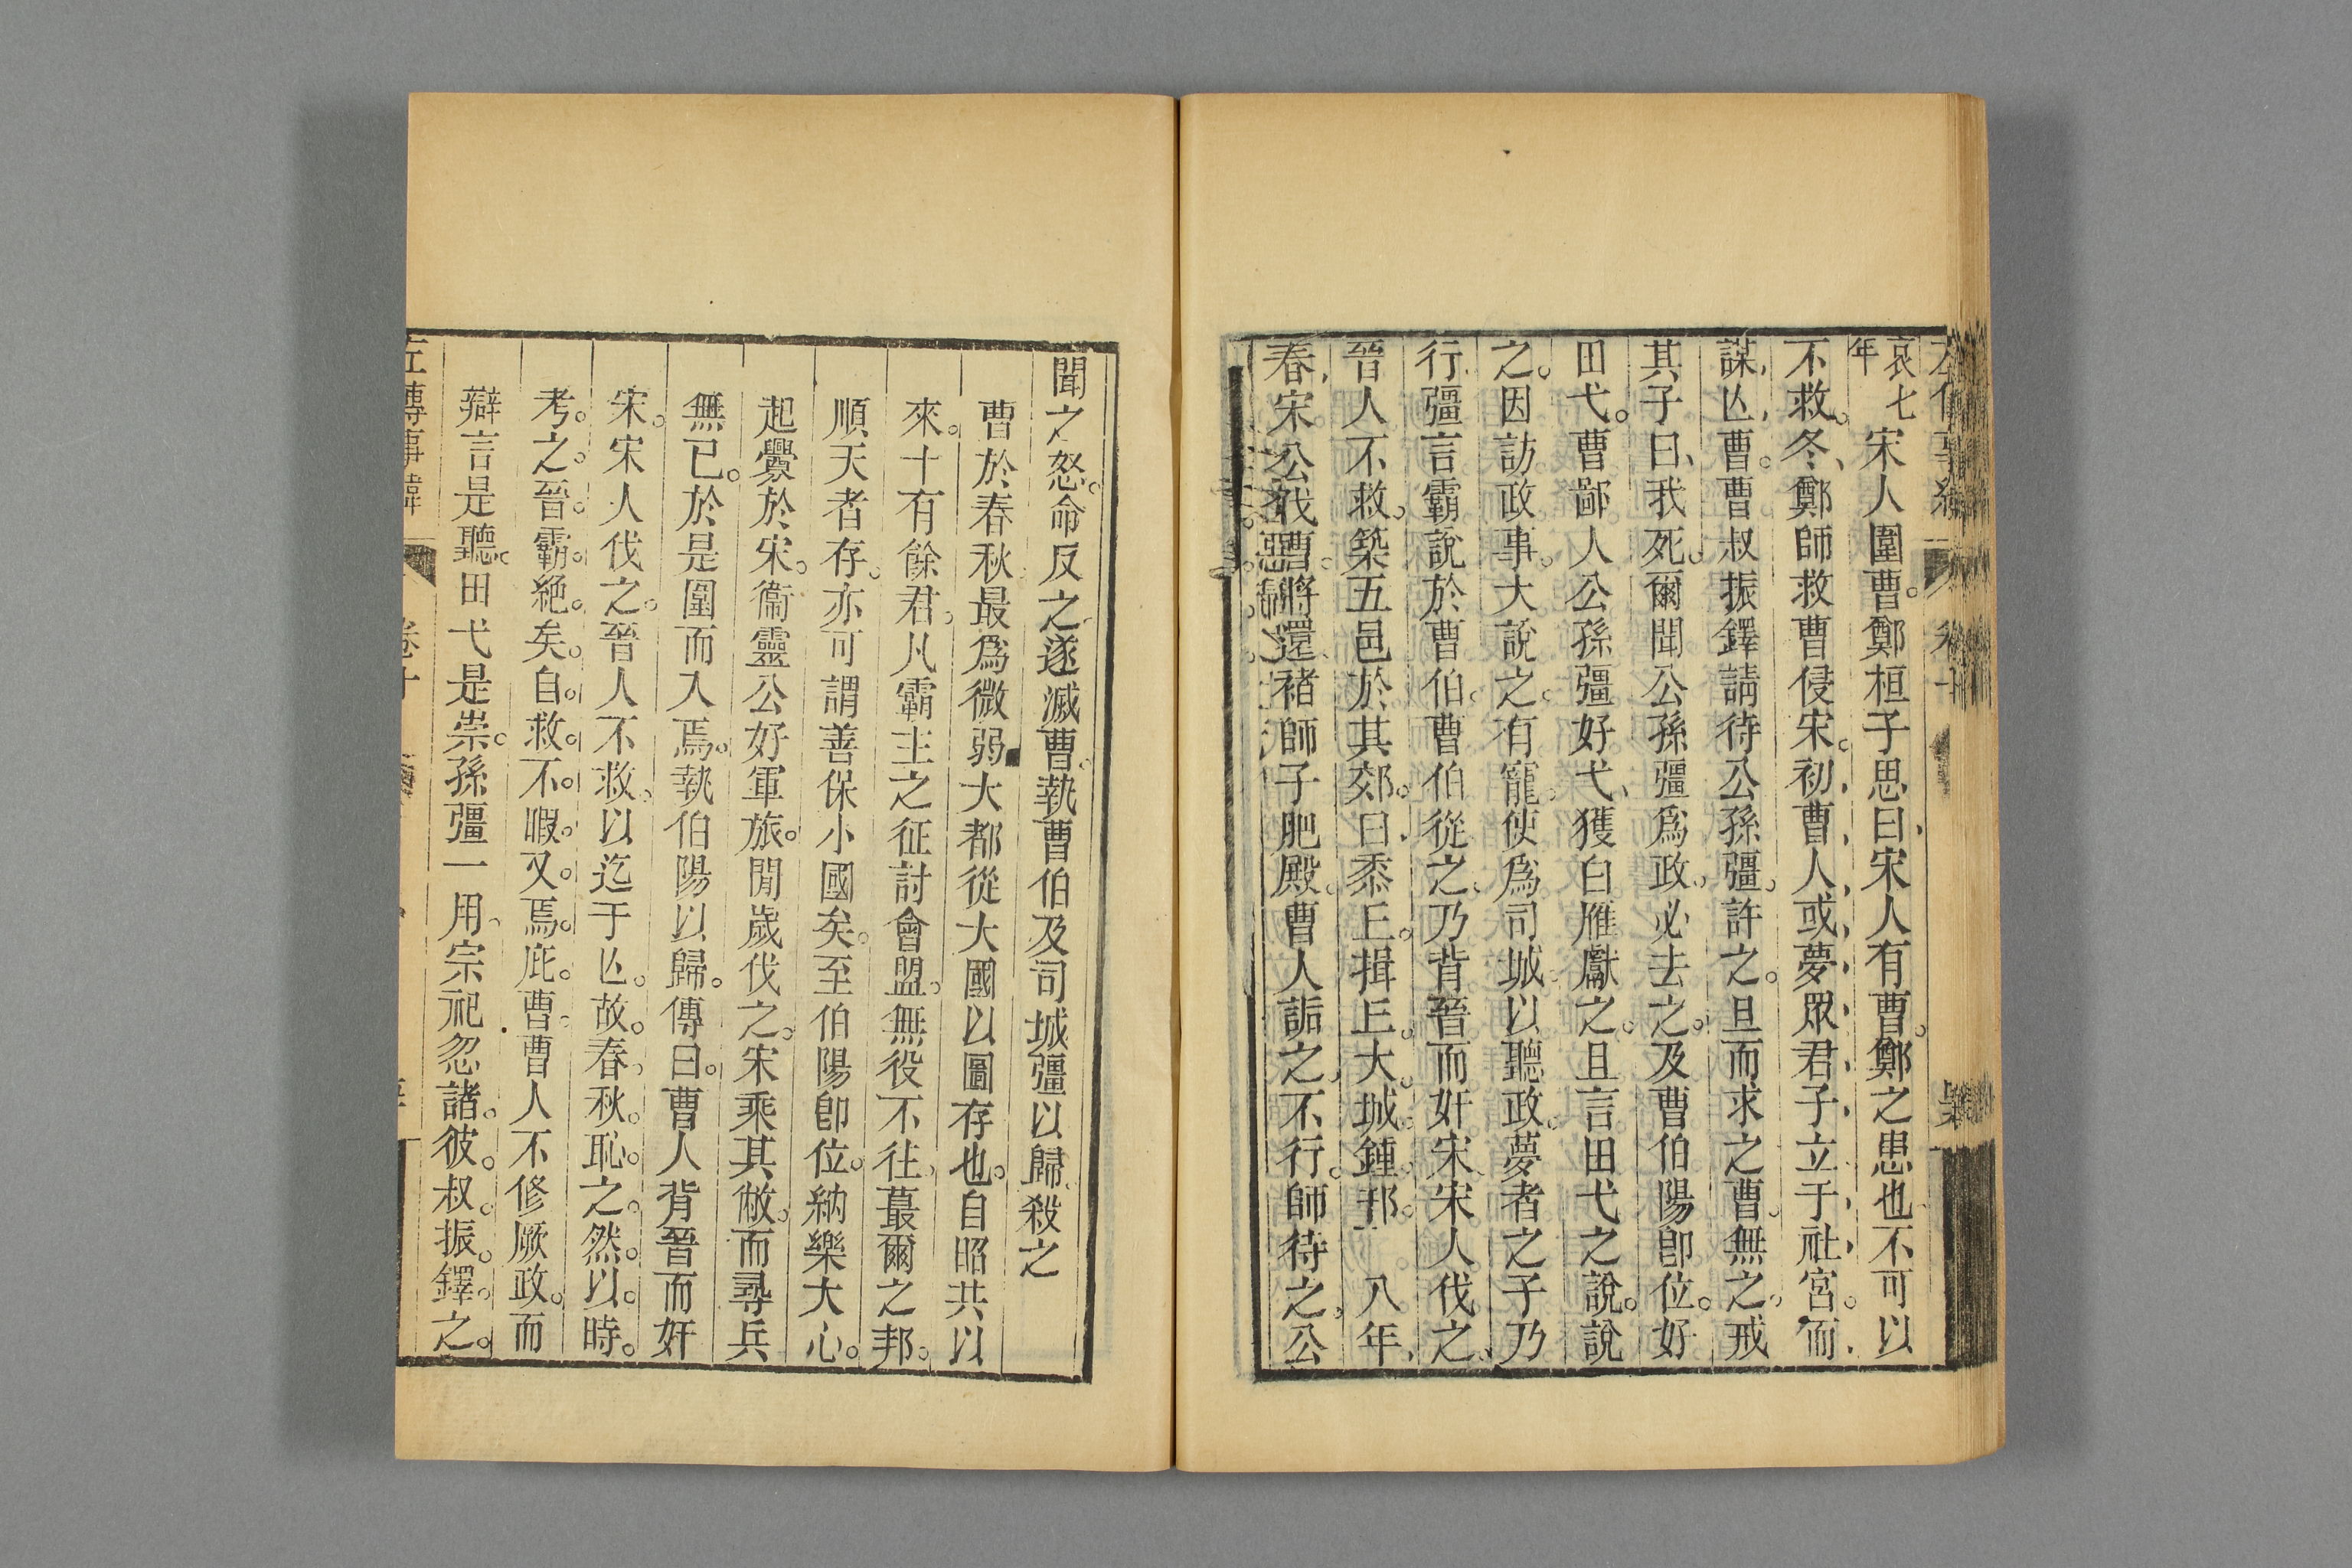 哀七年
宋人圍曹。鄭桓子思曰、宋人有曹。鄭之患也、不可以
不救。冬、鄭師救曹侵宋。初、曹人或夢眾君子立于社宮。而
謀亾曹。曹叔振鐸請待公孫彊。許之。旦而求之曹、無之、戒
其子曰、我死。爾聞公孫彊爲政、必去之。及曹伯陽卽位。好
田弋。曹鄙人公孫彊好弋、獲白雁獻之。且言田弋之說。說
之。因訪政事。大說之。有寵。使爲司城以聽政。夢者之子乃
行、彊言霸說於曹伯。曹伯從之、乃背晉而奸宋、宋人伐之、
晉人不救。築五邑於其郊。曰、黍丘。揖丘。大城。鍾。邘。　八年、
春、宋公伐曹。將還、褚師子肥殿。曹人詬之、不行。師待之、公
聞之怒。命反之、遂滅曹。執曹伯及司城彊以歸、殺之
曹於春秋最爲微弱大都從大國以圖存也。自昭共以
來。十有餘君。凡霸主之征討會盟。無役不往、蕞爾之邦。
順天者存。亦可謂善保小國矣。至伯陽卽位。納樂大心。
起釁於宋。衞靈公好軍旅。閒歲伐之。宋乘其敝。而尋兵
無已。於是圍而入焉。執伯陽以歸。傳曰。曹人背晉而奸
宋。宋人伐之。晉人不救。以迄于亾。故。春。秋。恥。之。然。以。時。
考。之。晉。霸。絕。矣。自。救。不。暇。又。焉。庇。曹。曹人不修厥政。而
辯言是聽。田弋是崇。孫彊一用、宗祀忽諸。彼。叔。振。鐸。之。
左傳事緯
卷十